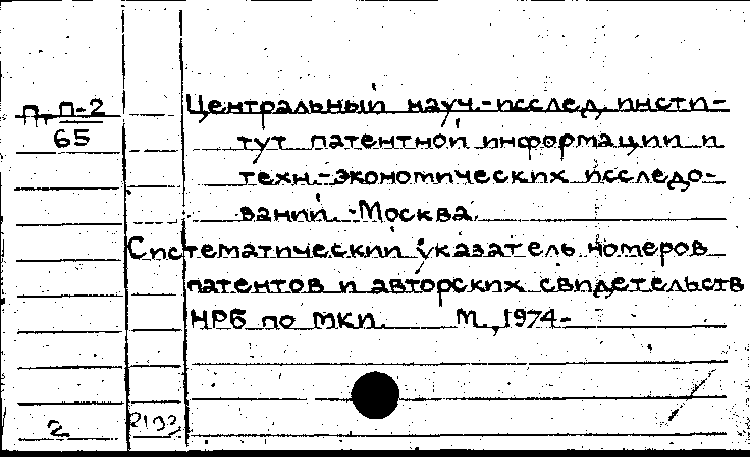 П-2
Пт
65
Центральный науч.-исслед. инсти-
тут патентной информации и
техн.-экономических исследо-
ваний. -Москва.
Систематический указатель номеров
патентов и авторских свидетельств
НРБ по МКИ. М., 1974-
2